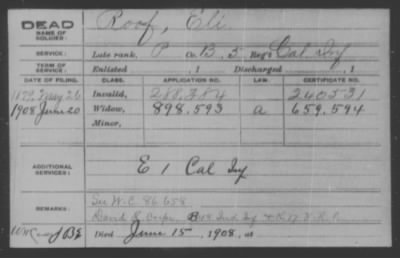 DEAD
NAME OF SOLDIER: Roof, Eli
SERVICE: Late rank, P Co. B, 5 Reg't Cal Inf
TERM OF SERVICE: Enlisted , 1 Discharged , 1
DATE OF FILING. CLASS. APPLICATION NO. LAW. CERTIFICATE NO.
1879 May 26 Invalid, 288.384 240531
1908 June 20 Widow, 898.593 a 659.594
Minor,
ADDITIONAL SERVICES: E 1 Cal Inf
See W.C. 86 658
REMARKS: David R. Ind. Inf
Died June 15, 1908, at